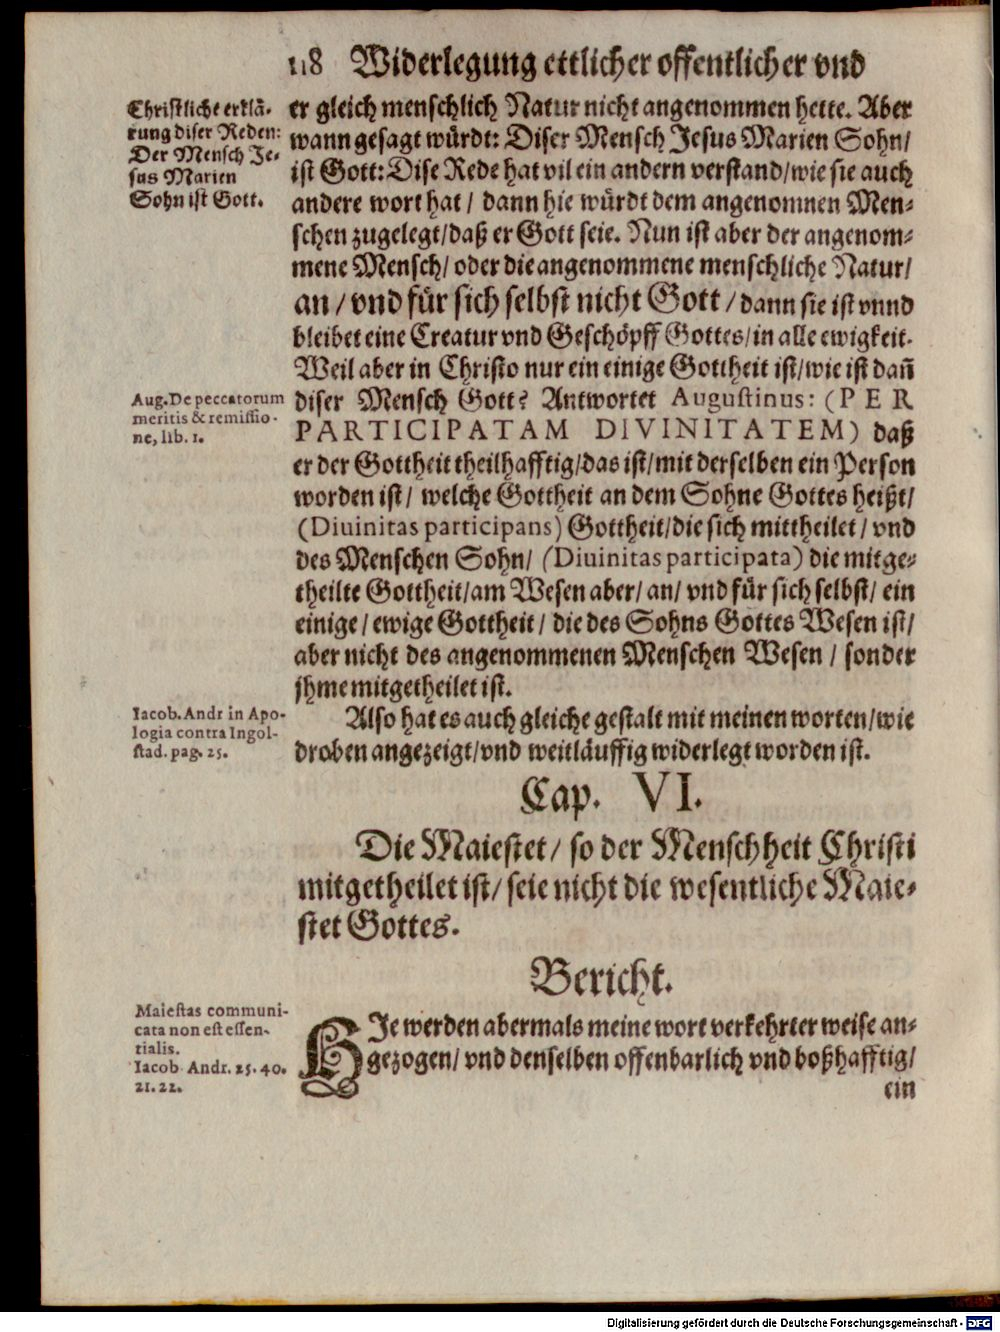 118 Widerlegung ettlicher offentlicher vnd
Christliche erklä-
rung diser Reden:
Der Mensch Je-
sus Marien
Sohn ist Gott.
er gleich menschlich Natur nicht angenommen hette. Aber
wann gesagt würdt: Diser Mensch Jesus Marien Sohn/
ist Gott: Dise Rede hat vil ein andern verstand/ wie sie auch
andere wort hat/ dann hie würdt dem angenomnen Men-
schen zugelegt/ daß er Gott seie. Nun ist aber der angenom-
mene Mensch/ oder die angenommene menschliche Natur/
an/ vnd für sich selbst nicht Gott/ dann sie ist vnnd
bleibet eine Creatur vnd Geschöpff Gottes/ in alle ewigkeit.
Weil aber in Christo nur ein einige Gottheit ist/ wie ist dañ
Aug. De peccatorum
meritis & remissio-
ne, lib. 1.
diser Mensch Gott? Antwortet Augustinus: (PER
PARTICIPATAM DIVINITATEM) daß
er der Gottheit theilhafftig/ das ist/ mit derselben ein Person
worden ist/ welche Gottheit an dem Sohne Gottes heißt/
(Diuinitas participans) Gottheit/ die sich mittheilet/ vnd
des Menschen Sohn/ (Diuinitas participata) die mitge-
theilte Gottheit/ am Wesen aber/ an/ vnd für sich selbst/ ein
einige/ ewige Gottheit/ die des Sohns Gottes Wesen ist/
aber nicht des angenommenen Menschen Wesen/ sonder
jhme mitgetheilet ist.
Iacob. Andr in Apo-
logia contra Ingol-
stad. pag. 25.
Also hat es auch gleiche gestalt mit meinen worten/ wie
droben angezeigt/ vnd weitläuffig widerlegt worden ist.
Cap. VI.
Die Maiestet/ so der Menschheit Christi
mitgetheilet ist/ seie nicht die wesentliche Maie-
stet Gottes.
Bericht.
Maiestas communi-
cata non est essen-
tialis.
Iacob Andr. 25. 40.
21. 22.
HJe werden abermals meine wort verkehrter weise an-
gezogen/ vnd denselben offenbarlich vnd boßhafftig/
ein
Digitalisierung gefördert durch die Deutsche Forschungsgemeinschaft - DFG